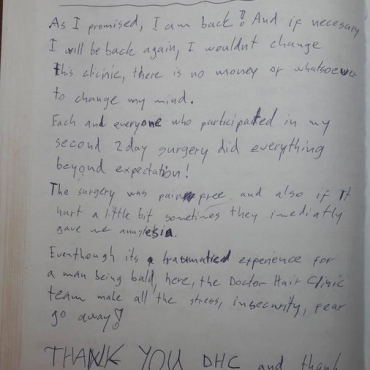 As I promised, I am back! And if necesary
I will be back again, I wouldnt change
this clinic, there is no money or whatsoever
to change my mind.
Each and everyone who participated in my
second 2day surgery did everything
beyond expectation!
The surgery was pain free and also if it
hurt a little bit sometimes they imediatly
gave me anaglesia.
Eventhough its a traumatical experience for
a man being bald, here, the Doctor Hair Clinic
team make all the stress, insecurity, fear
go away!
THANK YOU DHC and thank